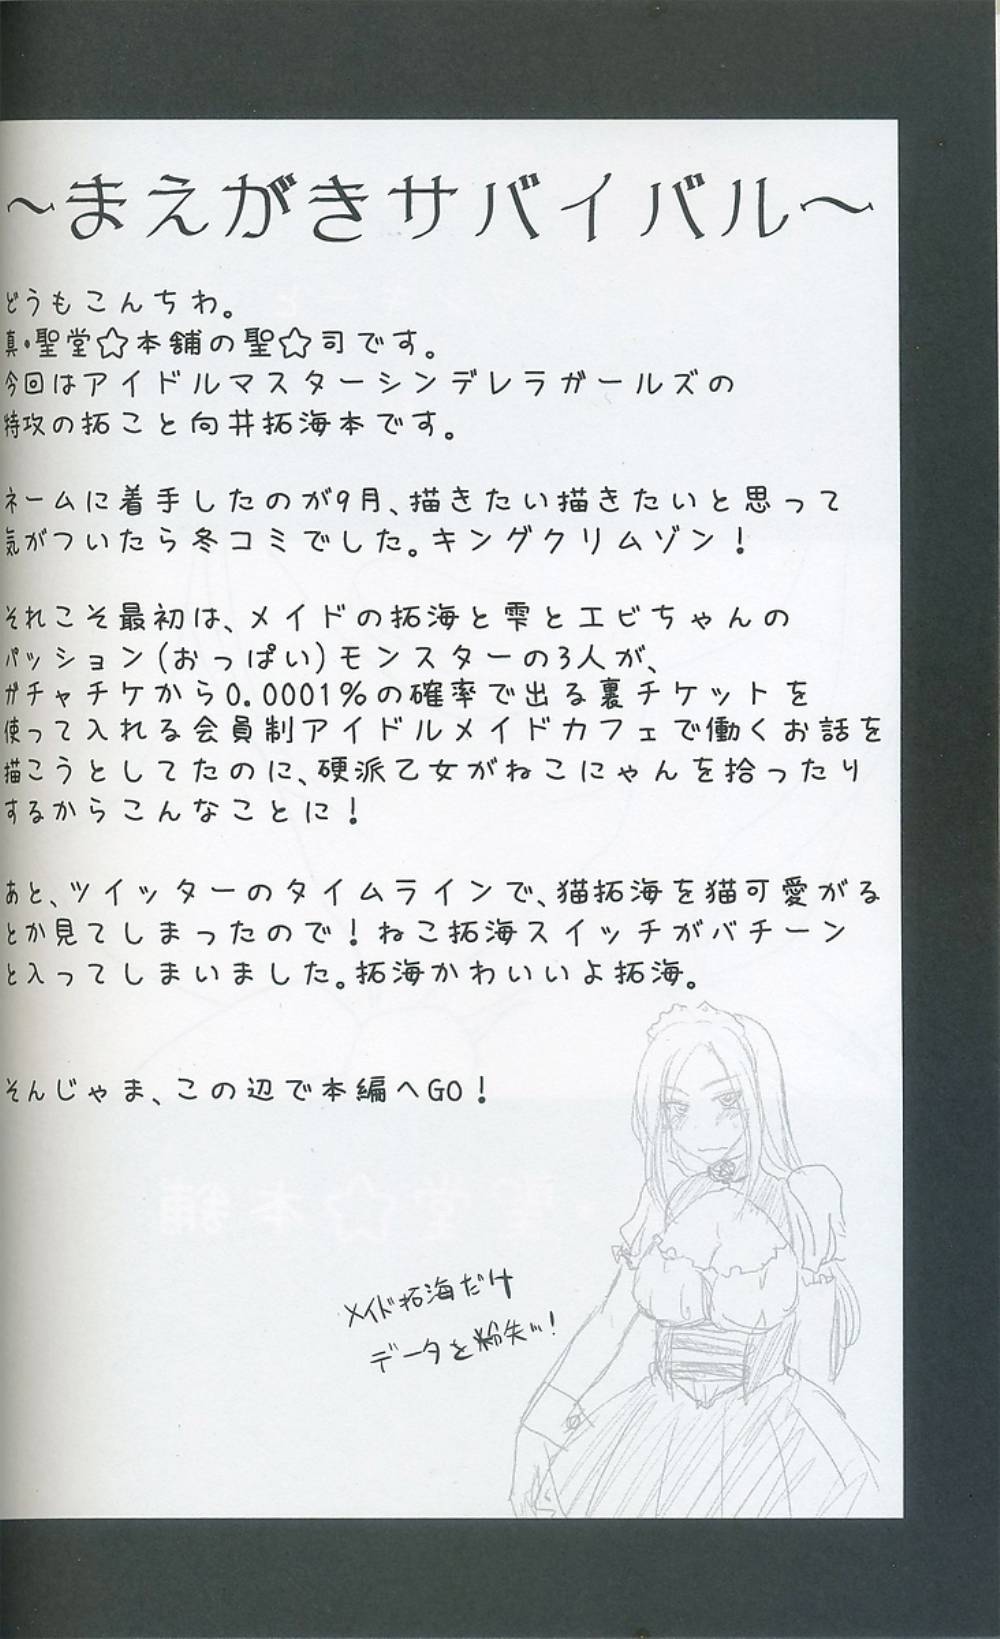 ～まえがきサバイバル～
どうもこんちわ。
真・聖堂☆本舗の聖☆司です。
今回はアイドルマスターシンデレラガールズの
特攻の拓こと向井拓海本です。
ネームに着手したのが9月、描きたい描きたいと思って
気がついたら冬コミでした。キングクリムゾン！
それこそ最初は、メイドの拓海と雫とエビちゃんの
パッション(おっぱい)モンスターの3人が、
ガチャチケから0.0001%の確率で出る裏チケットを
使って入れる会員制アイドルメイドカフェで働くお話を
描こうとしてたのに、硬派乙女がねこにゃんを拾ったり
するからこんなことに！
あと、ツイッターのタイムラインで、猫拓海を猫可愛がる
とか見てしまったので！ねこ拓海スイッチがバチーン
と入ってしまいました。拓海かわいいよ拓海。
そんじゃま、この辺で本編へGO！
メイド拓海だけ
データを紛失ッ！
聖堂☆本舗